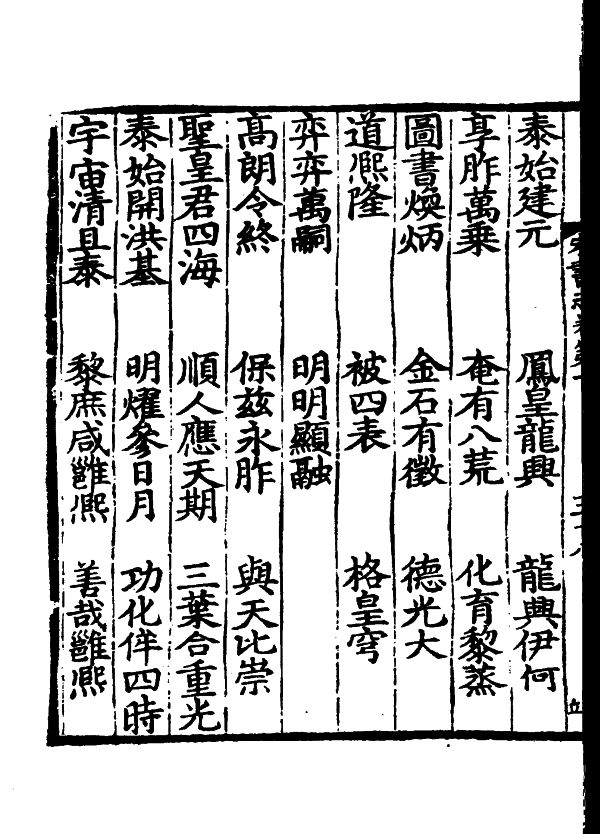 泰始建元　鳳皇龍興　龍興伊何
享胙萬乗　奄有八荒　化育黎蒸
圖書煥炳　金石有徵　德光大
道熈隆　被四表　格皇穹
弈弈萬嗣　明明顯融
髙朗令終　保兹永胙　與天比崇
聖皇君四海　順人應天期　三葉合重光
泰始開洪基　明燿參日月　功化侔四時
宇宙清且泰　黎庶咸雝熈　善哉雝熈